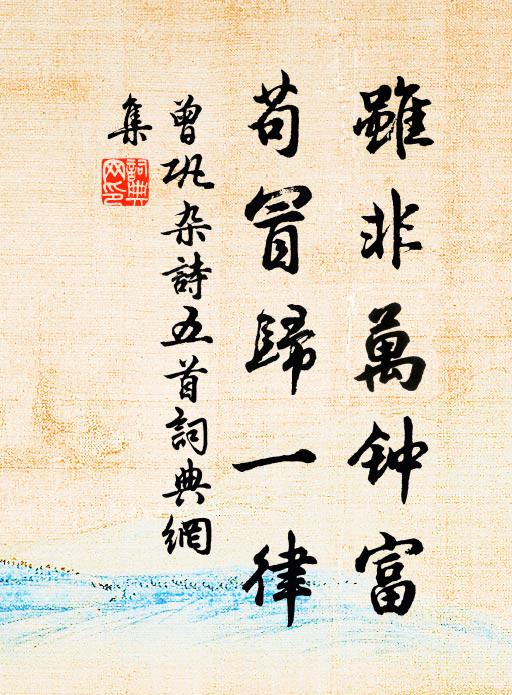 雖非萬钟富
苟冒歸一律
曾巩杂詩五首詞典網
集
詞典
网印